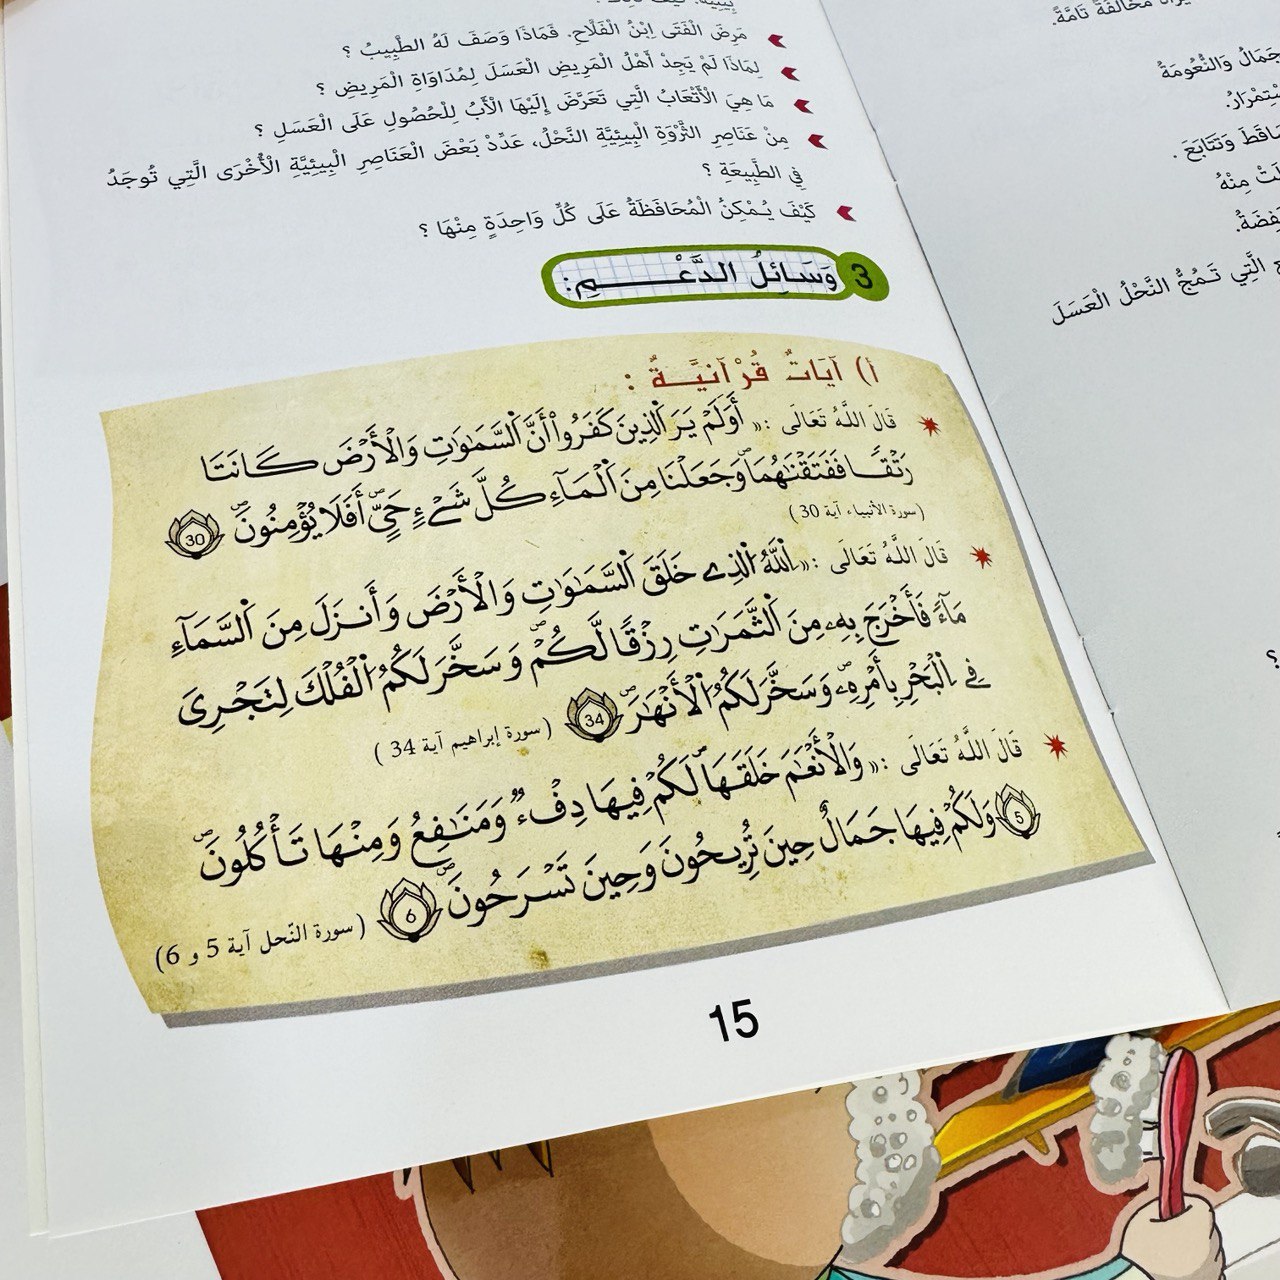 مَرِضَ الْفَتَى اِبْنُ الْفَلَّاحِ. فَمَاذَا وَصَفَ لَهُ الطَّبِيبُ ؟
لِمَاذَا لَمْ يَجِدْ أَهْلُ الْمَرِيضِ الْعَسَلَ لِمُدَاوَاةِ الْمَرِيضِ ؟
مَا هِيَ الْأَتْعَابُ الَّتِي تَعَرَّضَ إِلَيْهَا الْأَبُ لِلْحُصُولِ عَلَى الْعَسَلِ ؟
مِنْ عَنَاصِرِ الثَّرْوَةِ الْبِيئِيَّةِ النَّحْلُ، عَدِّدْ بَعْضَ الْعَنَاصِرِ الْبِيئِيَّةِ الْأُخْرَى الَّتِي تُوجَدُ
فِي الطَّبِيعَةِ ؟
كَيْفَ يُمْكِنُ الْمُحَافَظَةُ عَلَى كُلِّ وَاحِدَةٍ مِنْهَا ؟
3 وَسَائِلُ الدَّعْـــمِ:
أ) آيَاتٌ قُرْآنِيَّـةٌ :
قَالَ اللَّهُ تَعَالَى :« أَوَلَمْ يَرَ اَلذِينَ كَفَرُوٓاْ أَنَّ اَلسَّمَٰوَٰتِ وَالْأَرْضَ كَانَتَا
رَتْقًا فَفَتَقْنَٰهُمَاۖ وَجَعَلْنَا مِنَ اَلْمَآءِ كُلَّ شَےْءٍ حَيٍّۖ اَفَلَا يُؤْمِنُونَۖ 30
(سورة الأنبياء آية 30 )
قَالَ اللَّهُ تَعَالَى :« اِللَّهُ اُلذِے خَلَقَ اَلسَّمَٰوَٰتِ وَالْأَرْضَ وَأَنزَلَ مِنَ اَلسَّمَآءِ
مَآءً فَأَخْرَجَ بِهِۦ مِنَ اَلثَّمَرَٰتِ رِزْقًا لَّكُمْۖ وَسَخَّرَ لَكُمُ اُلْفُلْكَ لِتَجْرِىَ
فِے اِلْبَحْرِ بِأَمْرِهِۦۖ وَسَخَّرَ لَكُمُ اُلْأَنْهَٰرَۖ 34 (سورة إبراهيم آية 34 )
قَالَ اللَّهُ تَعَالَى :« وَالْأَنْعَٰمَ خَلَقَهَاۖ لَكُمْ فِيهَا دِفْءٌ وَمَنَٰفِعُ وَمِنْهَا تَأْكُلُونَۖ
5 وَلَكُمْ فِيهَا جَمَالٌ حِينَ تُرِيحُونَ وَحِينَ تَسْرَحُونَۖ 6 (سورة النّحل آية 5 و 6)
15
مُخَالَفَةً تَامَّةً.
وَالنُّعُومَةُ
وَتَتَابَعَ .
مِنْهُ
الَّتِي تَمُجُّ النَّحْلُ الْعَسَلَ
؟